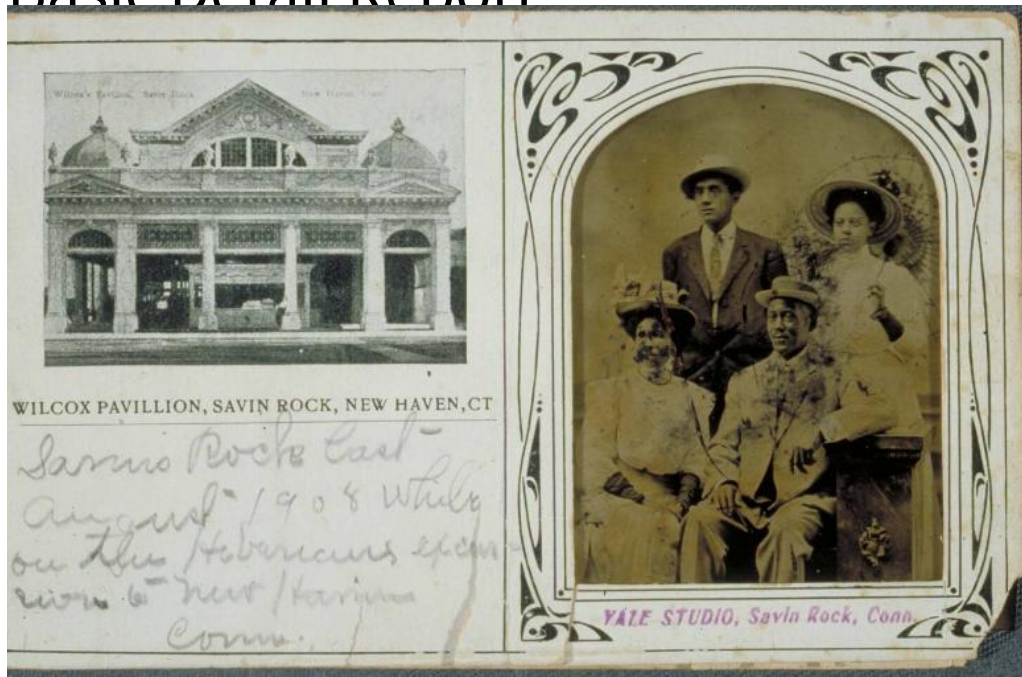 Basic Detail Report
Wilcox's Pavilion, Savin Rock New Haven, Conn.
WILCOX PAVILLION, SAVIN ROCK, NEW HAVEN, CT
Rock Last
August 1908 While
on the excur-
sion to New Haven
Conn.
YALE STUDIO, Savin Rock, Conn.